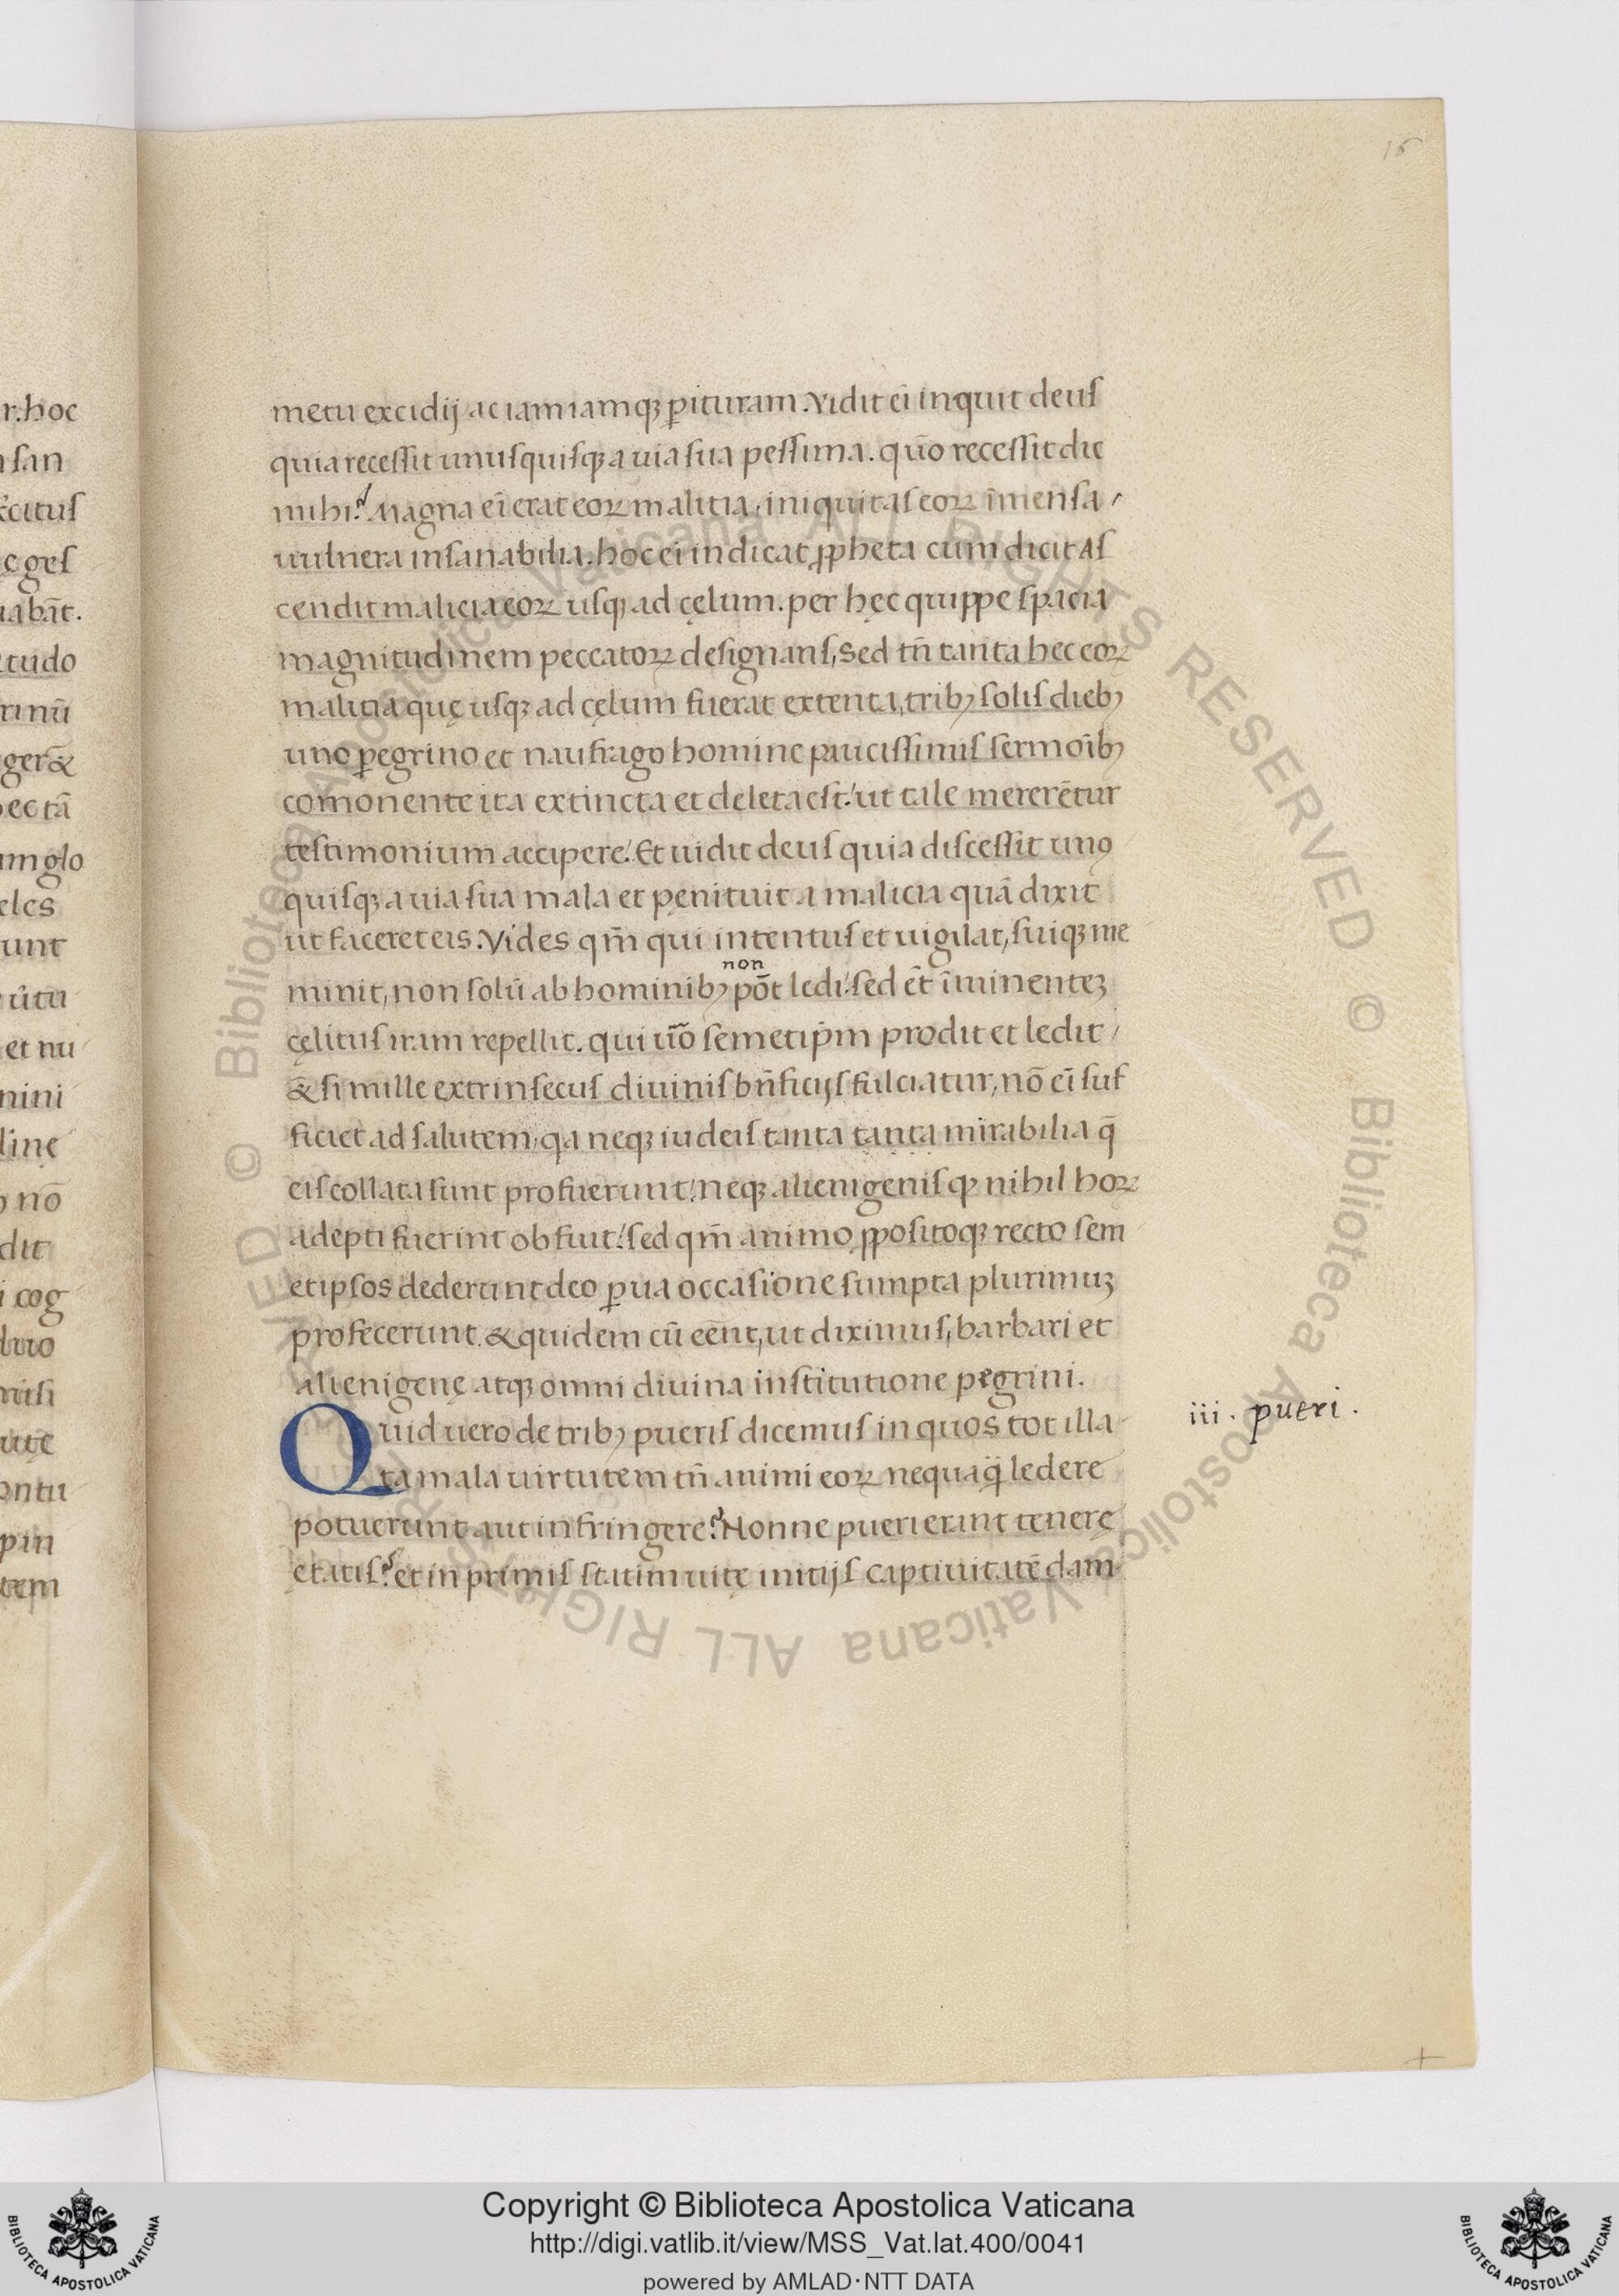 16
metu excidij ac iam iamqꝫ ꝑituram. Vidit ei̅ inquit deus
quia recessit unusquisqꝫ a uia sua pessima. quo̅ recessit dic
mihi? Magna ei̅ erat eoꝝ malitia, iniquitas eoꝝ i̅mensa,
uulnera insanabilia. hoc ei indicat ꝓpheta cum dicit As
cendit malicia eoꝝ usqꝫ ad cęlum. per hęc quippe spacia
magnitudinem peccatoꝝ designans, Sed tn̅ tanta hec eoꝝ
malitia quę usqꝫ ad cęlum fuerat extenta, tribꝫ solis diebꝫ
uno ꝑegrino et naufrago homine paucissimis sermo̅ibꝫ
comonente ita extincta et deleta est! ut tale merere̅tur
testimonium accipere! Et uidit deus quia discessit unọ
quisqꝫ a uia sua mala et pęnituit a malicia qua̅ dixit
ut faceret eis. Vides qm̅ qui intentus et uigilat, suiqꝫ me
non
minit, non solu̅ ab hominibꝫ po̅t ledi! sed et̅ i̅minenteꝫ
cęlitus iram repellit. qui u̅o semetip̅m prodit et ledit,
& si mille extrinsecus diuinis bn̅ficijs fulciatur, no̅ ei̅ suf
ficiet ad salutem, qa neqꝫ iudeis tanta tanta mirabilia q̅
eis collata sunt profuerunt! neqꝫ alienigenis qꝫ nihil hoꝝ
adepti fuerint obfuit! sed qm̅ animo ꝓpositoqꝫ recto sem
etipsos dederunt deo ꝑua occasione sumpta plurimuꝫ
profecerunt. & quidem cu̅ ee̅nt, ut diximus, barbari et
alienigenę atqꝫ omni diuina institutione pegrini.
Quid uero de tribꝫ pueris dicemus in quos tot illa
iii. pueri.
ta mala uirtutem tn̅ animi eoꝝ nequaq̅ ledere
potuerunt aut infringere? Nonne pueri erant tenerę
etatis? et in primis statim uitę initijs captiuitate̅ dam
r. hoc
san
citus
ęges
uaba̅t.
tudo
rinu̅
ger&
ec ta̅
um glo
eles
unt
et nu
mini
no̅
dit
cog
duo
pin
tem
© Biblioteca Apostolica Vaticana ALL RIGHTS RESERVED © Biblioteca Apostolica Vaticana ALL RIGHTS RESERVED
Copyright © Biblioteca Apostolica Vaticana
http://digi.vatlib.it/view/MSS_Vat.lat.400/0041
powered by AMLAD·NTT DATA
BIBLIOTECA APOSTOLICA VATICANA
BIBLIOTECA APOSTOLICA VATICANA